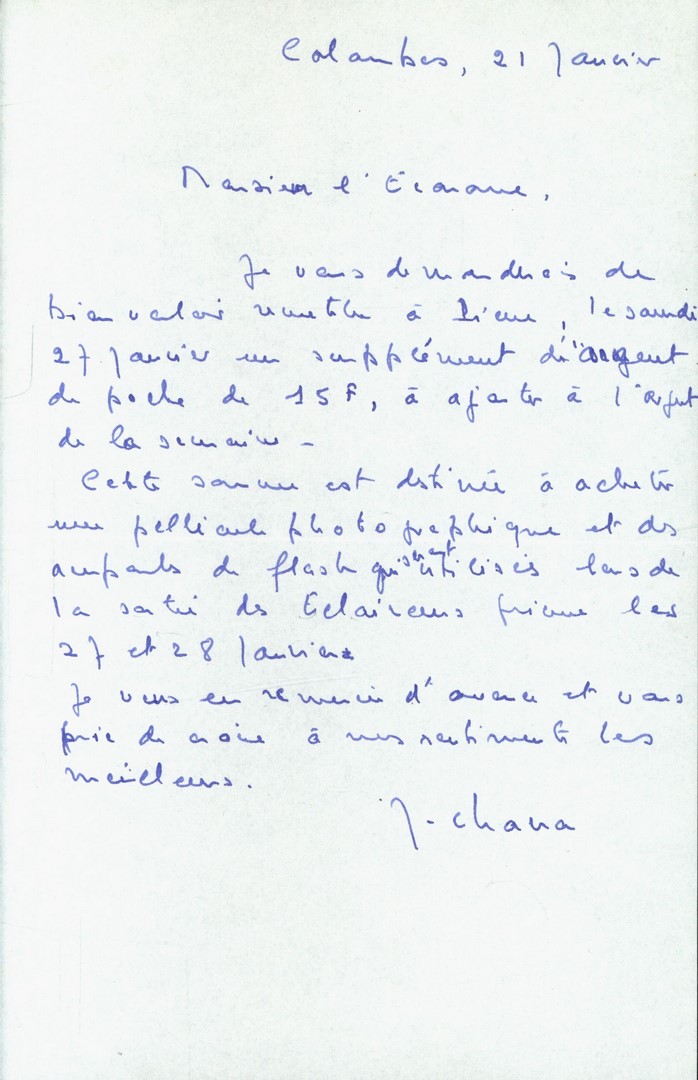 Colombes, 21 Janvier
Monsieur l'Econome,
Je vous demanderais de
bien vouloir remettre à Pierre, le samedi
27 Janvier un supplément d'argent
de poche de 15F, à ajouter à l'argent
de la semaine -
Cette somme est destinée à acheter
une pellicule photographique et des
ampoules de flash qui seront utilisés lors de
la sortie des Eclaireurs prévue les
27 et 28 Janvier.
Je vous en remercie d'avance et vous
prie de croire à mes sentiments les
meilleurs.
J. Chava